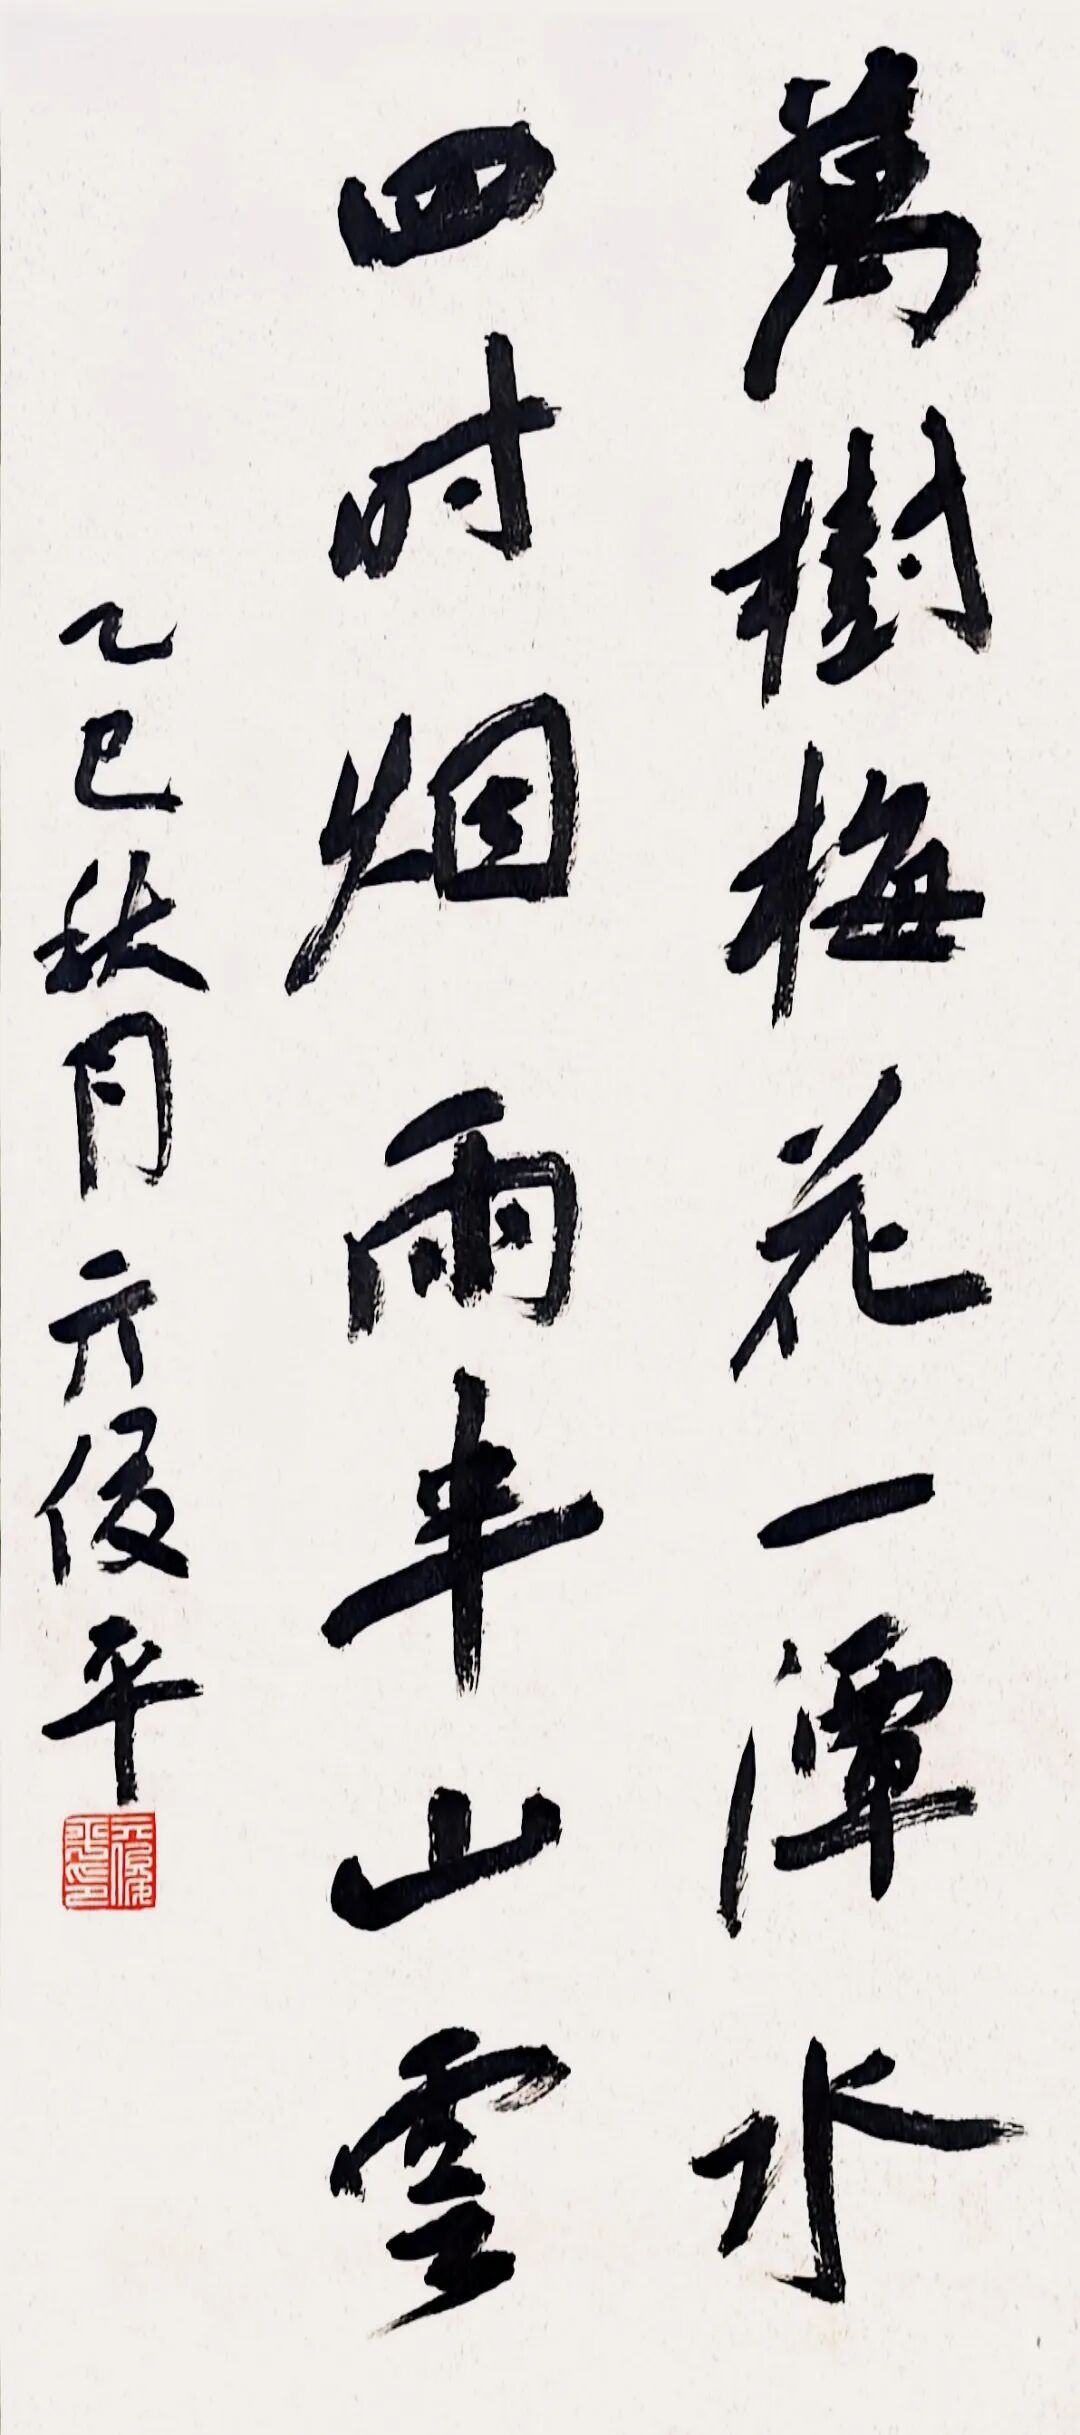 萬樹梅花一潭水
四时烟雨半山雲
乙巳秋月亓俊平